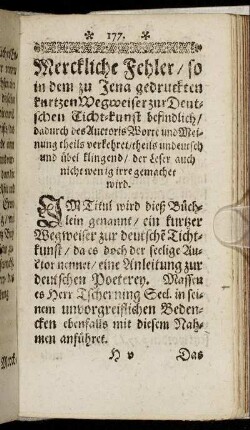 177.
Merckliche Fehler / so
in dem zu Jena gedruckten
kurtzen Wegweiser zur Deut-
schen Ticht-kunst befindlich /
dadurch des Auctoris Worte und Mei-
nung theils verkehret / theils undeutsch
und übel klingend / der Leser auch
nicht wenig irre gemachet
wird.
IM Titul wird dieß Büch-
lein genannt / ein kurtzer
Wegweiser zur deutschẽ Ticht-
kunst / da es doch der seelige Au-
ctor nennet / eine Anleitung zur
deutschen Poeterey. Massen
es Herr Tscherning Seel. in sei-
nem unvorgreiflichen Beden-
cken ebenfalls mit diesem Nah-
men anführet.
H v Das